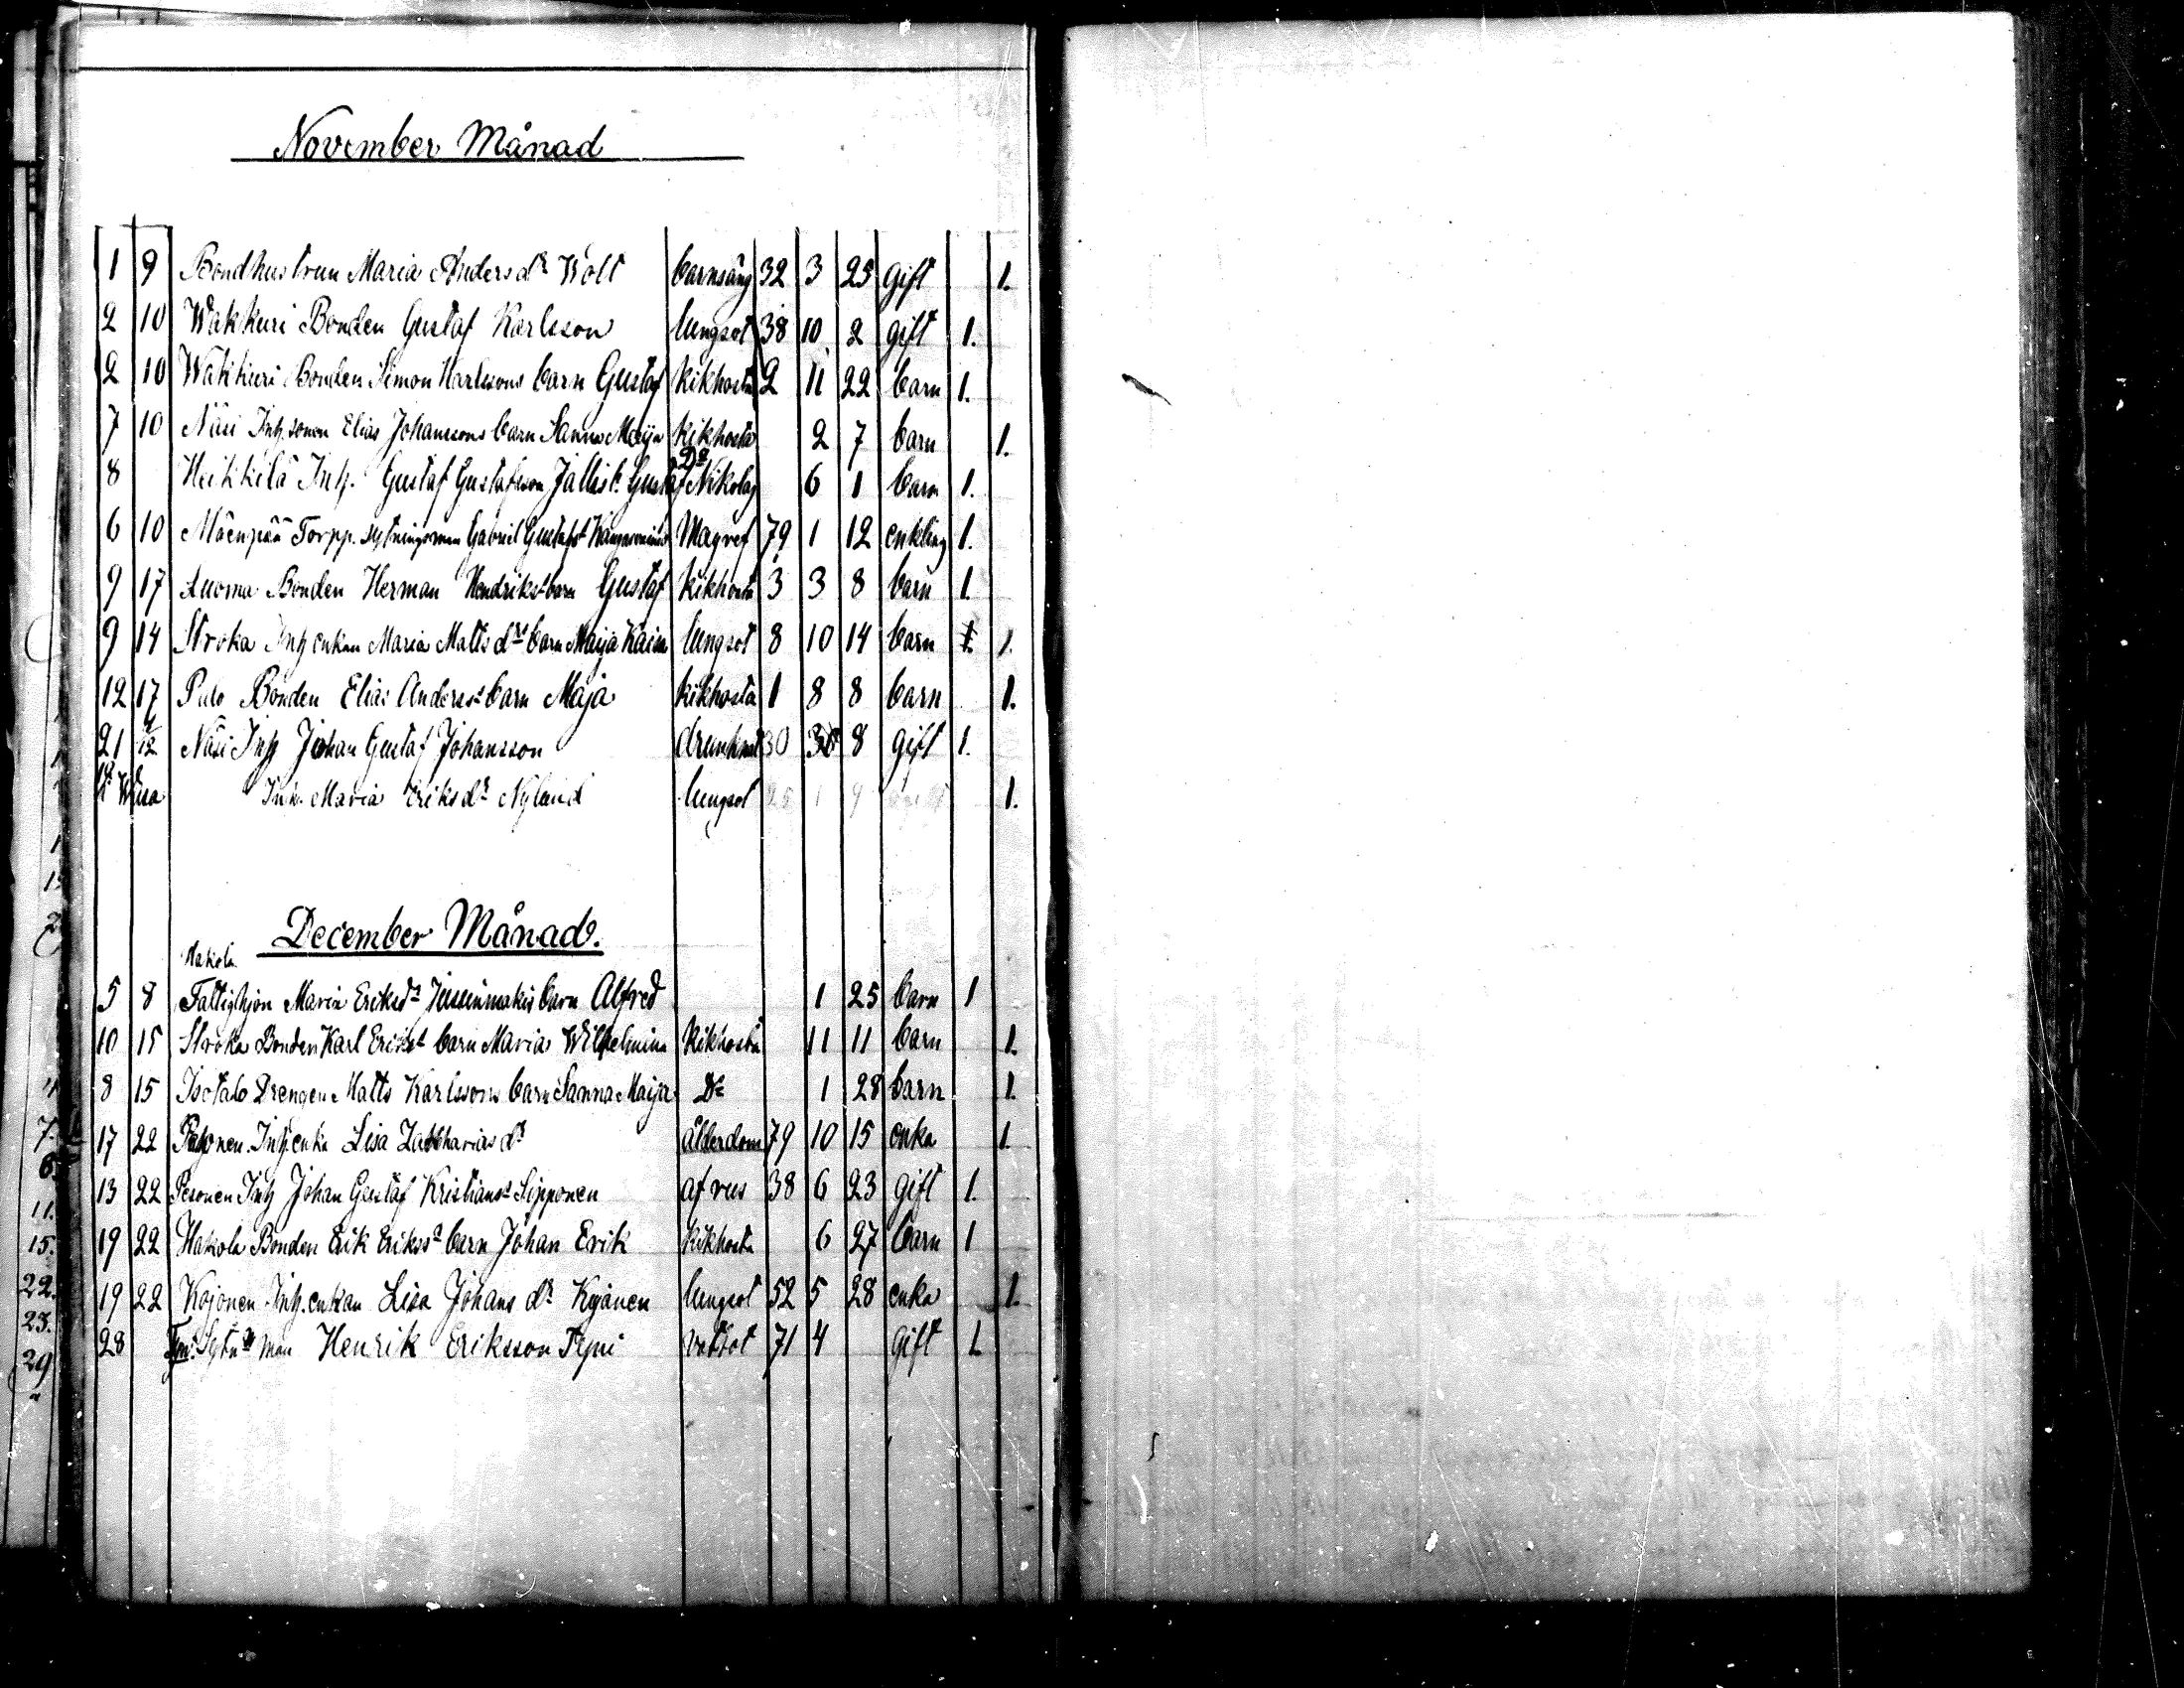 November Månad
1 9 Bondhustrun Maria Andersdr Wolt barnsäng 32 3 25 gift 1.
2 10 Wakkuri Bonden Gustaf Karlsson lungsot 38 10 2 gift 1.
2 10 Wakkuri Bonden Simon Karlssons barn Gustaf Kikhosta 2 11 22 barn 1.
7 10 Näsi Inh. sonen Elias Johanssons barn Sanna Maija Kikhosta 2 7 barn 1.
8 Heikkilä Inh. Gustaf Gustafsson Gustaf Nikolaj Do 6 1 barn 1.
6 10 Mäenpää Torpp. sytningsman Gabriel Gustafss Magref 79 1 12 enkling 1.
9 17 Luoma Bonden Herman Hendrikss barn Gustaf Kikhosta 3 3 8 barn 1.
9 14 Stroka Inh enkan Maria Mattsdrs barn Maija Kaisa lungsot 8 10 14 barn 1. 1.
12 17 Pulo Bonden Elias Anderss barn Maja Kikhosta 1 8 8 barn 1.
21 Näsi Inh Johan Gustaf Johansson 30 8 gift 1.
Wasa Inh. Maria Eriksdr Nylund lungsot 1.
December Månad.
Hakola
5 8 Fattighjon Maria Eriksdr Jussinmäkis barn Alfred 1 25 barn 1
10 15 Stroka Bonden Karl Erikss barn Maria Wilhelmina Kikhosta 11 11 barn 1.
8 15 Isotalo Drengen Matts Karlssons barn Sanna Maija Do 1 28 barn 1.
17 22 Inh. enka Lisa Zachariasdr ålderdom 79 10 15 enka 1.
13 22 Pesonen Inh Johan Gustaf Kristianss Sipponen af rus 38 6 23 gift 1.
19 22 Hakola Bonden Erik Erikss barn Johan Erik Kikhosta 6 27 barn 1
19 22 Kojonen Inh. enkan Lisa Johansdr Kojonen lungsot 52 5 28 enka 1.
28 Sytn man Henrik Eriksson 71 4 gift 1.
7.
6.
11.
15.
22.
23.
29